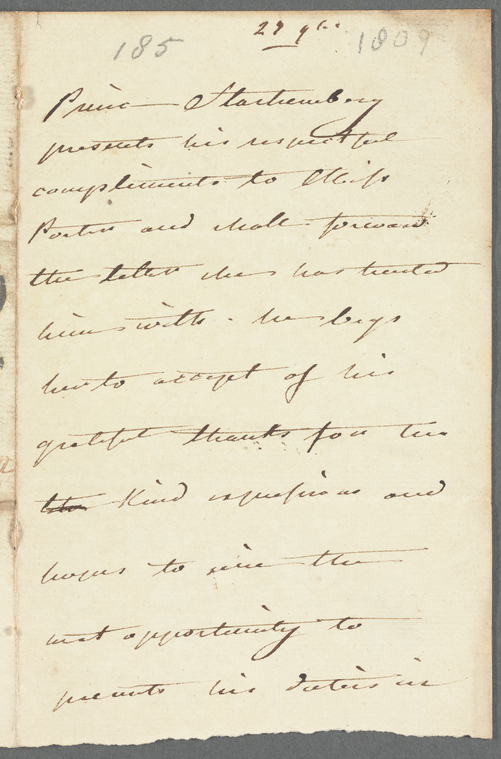 185 29 9bre 1809
Prince Starhemberg
presents his respectful
compliments to Miss
Porter and shall forward
the letter she has trusted
him with. he begs
her to accept of his
grateful thanks for the
kind expressions and
hopes to the
next opportunity to
presents his duties in